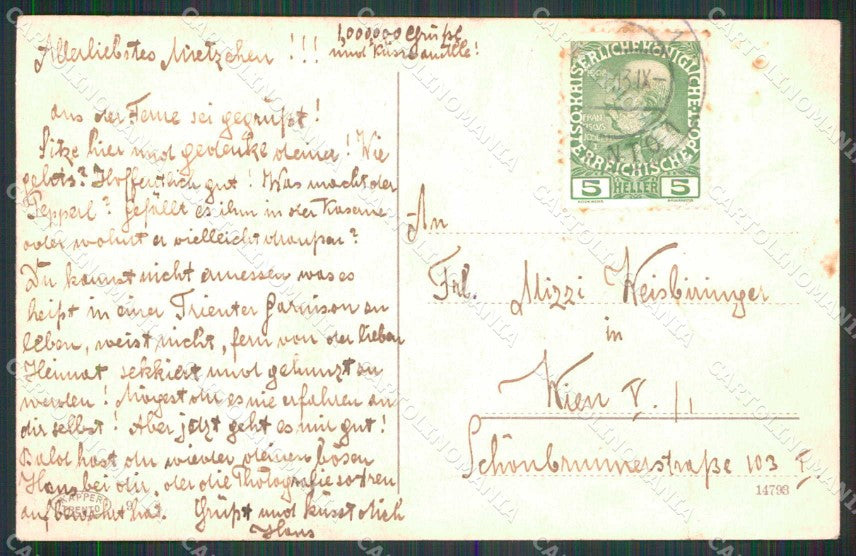 Allerliebstes Mietzchen !!!
1,000.000 Grüße
und Küsse an Alle!
aus der Ferne sei gegrüßt!
Sitze hier und gedenke deiner! Wie
gehts? Hoffentlich gut! Was macht der
Pepperl? Gefällt es ihm in der Kaserne
oder wohnt er vielleicht draußen?
Du kannst nicht ermessen was es
heißt in einer Trienter Garnison zu
leben, weist nicht, fern von der lieben
Heimat sekkiert und gehunzt zu
werden! Mögest du es nie erfahren an
dir selbst! Aber jetzt geht es mir gut!
Bald hast du wieder deinen bösen
Hans bei dir, der die Photografie so
aufbewahrt hat. Grüßt und küsst dich
Hans
KAISERLICHE KÖNIGLICHE
ÖSTERREICHISCHE POST
5 HELLER 5
13.IX
An
Frl. Mizzi Weisbiringer
in
Wien V./1
Schönbrunnerstraße 103
14793
TRENTO
CARTOLINOMANIA